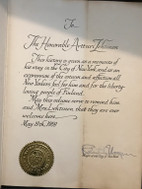 To
The Honorable Arttuuri
This history is given as a memento of
his stay in the City of New York and as
an expression of the esteem and affection all
New Yorkers feel for him and for the liberty-
loving people of Finland.
May this volume serve to remind him
and Mrs. that they are ever
welcome here.
May 18th, 1959